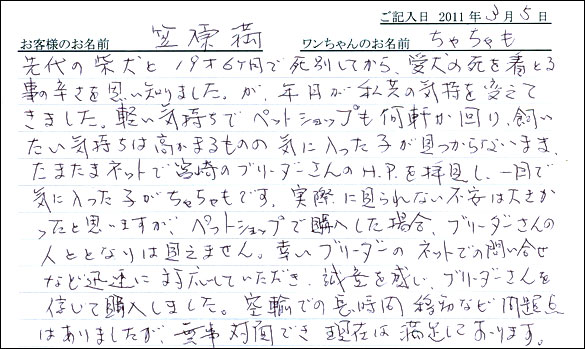 ご記入日 2011年3月5日
お客様のお名前 笠原 満 ワンちゃんのお名前 ちゃちゃも
先代の柴犬と19才6ヶ月で死別してから、愛犬の死を看とる
事の辛さを思い知りました。が、年月が私共の気持を変えて
きました。軽い気持ちでペットショップも何軒か回り、飼い
たい気持ちは高まるものの気に入った子が見つからないまま、
たまたまネットで宮崎のブリーダーさんのH.P.を拝見し、一目で
気に入った子がちゃちゃもです。実際に見られない不安は大きか
ったと思いますが、ペットショップで購入した場合、ブリーダーさんの
人となりは見えません。幸いブリーダーのネットでの問い合せ
など迅速に対応していただき、誠意を感じ、ブリーダーさんを
信じて購入しました。空輸での長時間移動など問題点
はありましたが、無事対面でき現在は満足しております。